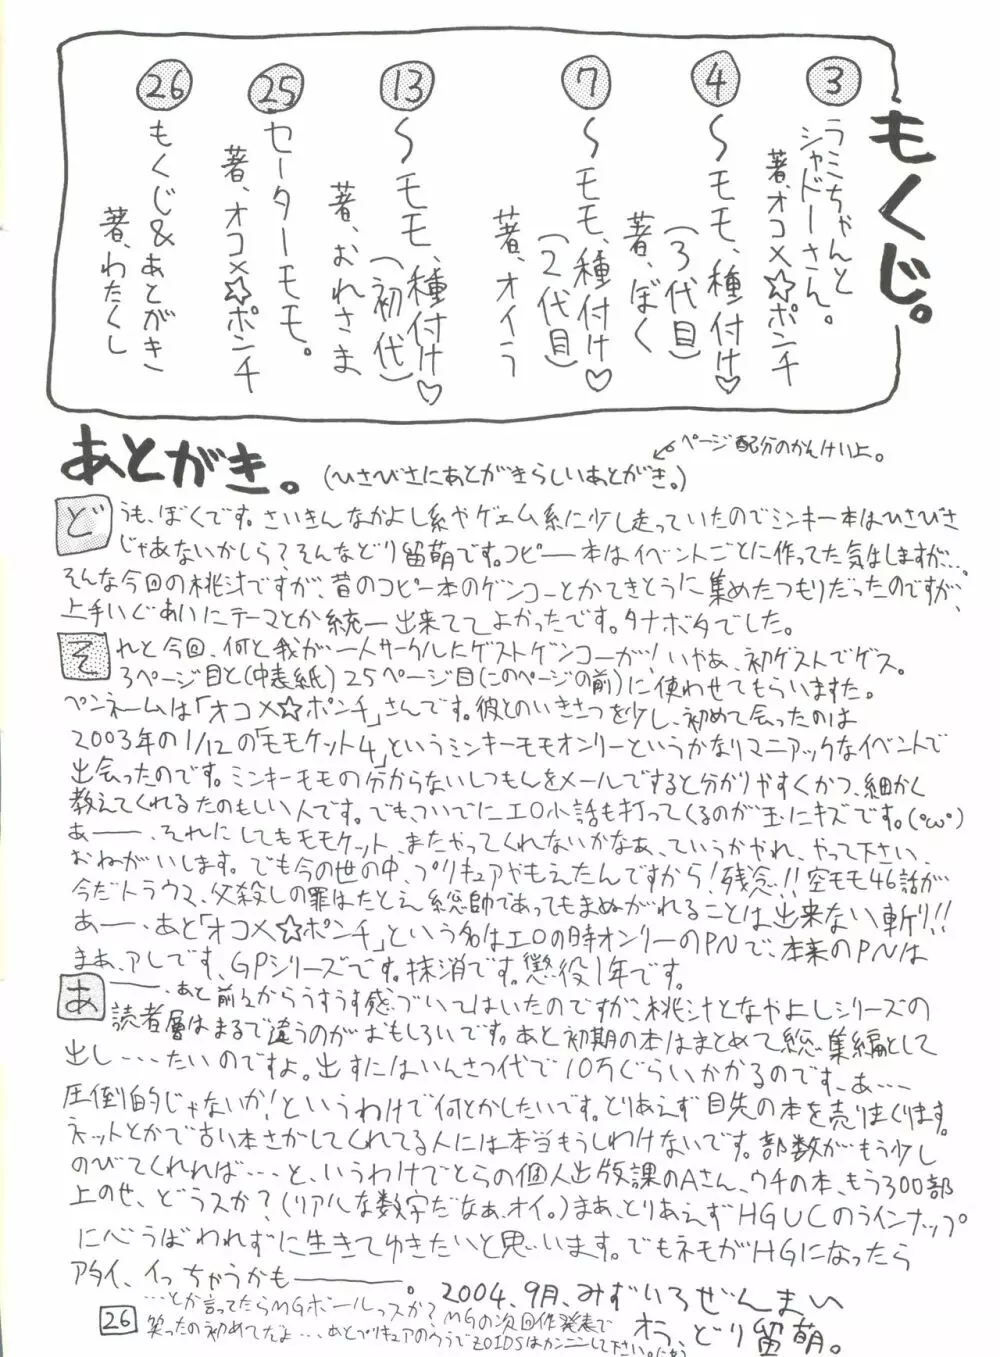 もくじ。
3
ラミちゃんと
シャドーさん。
著、オコメ☆ポンチ
4
〜モモ、種付け♡
(3代目)
著、ぼく
7
〜モモ、種付け♡
(2代目)
著、オイラ
13
〜モモ、種付け♡
(初代)
著、おれさま
25
セーターモモ。
著、オコメ☆ポンチ
26
もくじ&あとがき
著、わたくし
あとがき。(ひさびさにあとがきらしいあとがき。)
ページ配分のかんけい上。
どうも、ぼくです。さいきんなかよし系やゲェム系に少し走っていたのでミンキー本はひさびさ
じゃあないかしら?そんなどり留萌です。コピー本はイベントごとに作ってた気はしますが…。
そんな今回の桃汁ですが、昔のコピー本のゲンコーとかてきとうに集めたつもりだったのですが、
上手いぐあいにテーマとか統一出来ててよかったです。タナボタでした。
それと今回、何と我が一人サークルにゲストゲンコーが!いやぁ、初ゲストでゲス。
3ページ目と(中表紙)25ページ目(このページの前)に使わせてもらいました。
ペンネームは「オコメ☆ポンチ」さんです。彼とのいきさつを少し、初めて会ったのは
2003年の1/12の「モモケット4」というミンキーモモオンリーというかなりマニアックなイベントで
出会ったのです。ミンキーモモの分からないしつもんをメールですると分かりやすくかつ、細かく
教えてくれるたのもしい人です。でも、ついでにエロ小話も打ってくるのが玉にキズです。(°ω°)
あ――、それにしてもモモケット、またやってくれないかなぁ、ていうかやれ、やって下さい、
おねがいします。でも今の世の中、プリキュアやもえたんですから!残念!!空モモ46話が
今だトラウマ、父殺しの罪はたとえ総帥であってもまぬがれることは出来ない斬り!!
あ――、あと「オコメ☆ポンチ」という名はエロの時オンリーのPNで、本来のPNは
まぁ、アレです、GPシリーズです。抹消です。懲役1年です。
あ――、あと前々からうすうす感づいてはいたのですが、桃汁となやよしシリーズの
読者層はまるで違うのがおもしろいです。あと初期の本はまとめて総集編として
出し…たいのですよ。出すにはいんさつ代で10万ぐらいかかるのです、あ…
圧倒的じゃないか!というわけで何とかしたいです。とりあえず目先の本を売りまくります。
ネットとかで古い本さがしてくれてる人には本当もうしわけないです。部数がもう少し
のびてくれれば…と、いうわけでとらの個人出版課のAさん、ウチの本、もう300部
上のせ、どうスか?(リアルな数字だなぁ、オイ。)まぁ、とりあえずHGUCのラインナップ
に心うばわれずに生きてゆきたいと思います。でもネモがHGになったら
アタイ、イっちゃうかも―――。
2004、9月、みずいろぜんまい
オラ、どり留萌。
…とか言ってたらMGボールっスか?MGの次回作発表で
笑ったの初めてだよ…、あとプリキュアのウラでZOIDSはカンニンして下さい。
26